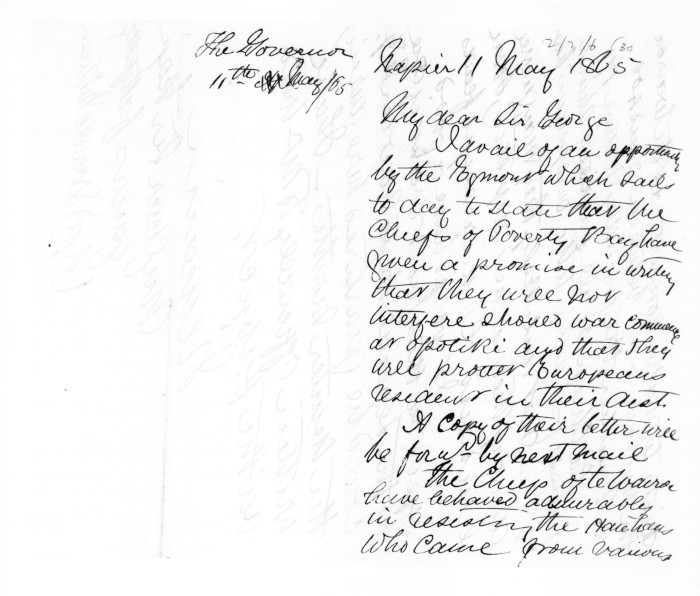 The Governor
11th May/65
Napier 11 May 1865
My dear Sir George
I avail of an opportunity
by the Egmont which sails
to day to state that the
Chiefs of Poverty Bay have
given a promise in writing
that they will not
interfere should war commence
at opotiki and that they
will protect Europeans
resident in their dist.
A copy of their letter will
be forwd. by next mail
The Chiefs of te Wairoa
have behaved admirably
in resisting the Hauhaus
who came from various